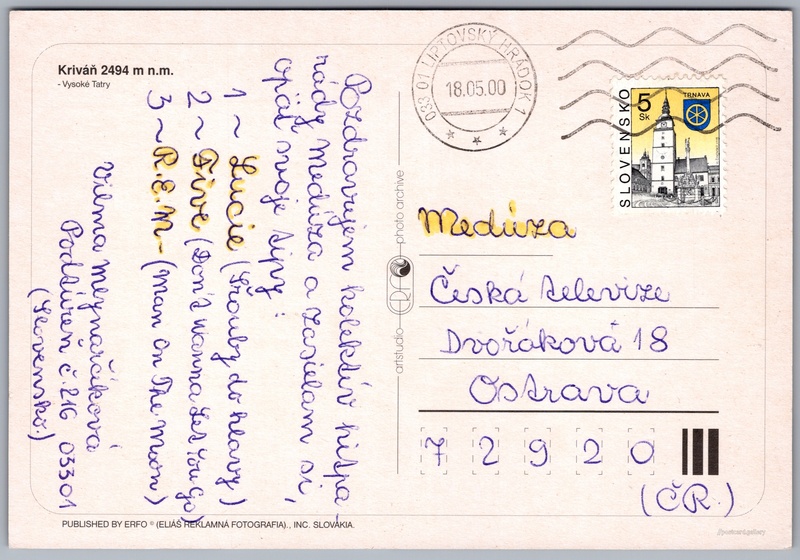 Kriváň 2494 m n.m.
- Vysoké Tatry
Pozdravujem kolektív hitpa-
rády Medúza a zasielam si,
opäť svoje tipy:
1 ~ Lucie (Šrouby do hlavy)
2 ~ Five (Don't Wanna Let You Go)
3 ~ R.E.M- (Man On The Moon)
Vilma Mlynarčíková
Podtúreň č. 216 03301
(Slovensko.)
PUBLISHED BY ERFO © (ELIÁŠ REKLAMNÁ FOTOGRAFIA)., INC. SLOVAKIA.
artstudio ERFO photo archive
033 01 LIPTOVSKÝ HRÁDOK 1
18.05.00
SLOVENSKO
5 Sk
TRNAVA
Medúza
Česká televize
Dvořáková 18
Ostrava
72920
(ČR.)